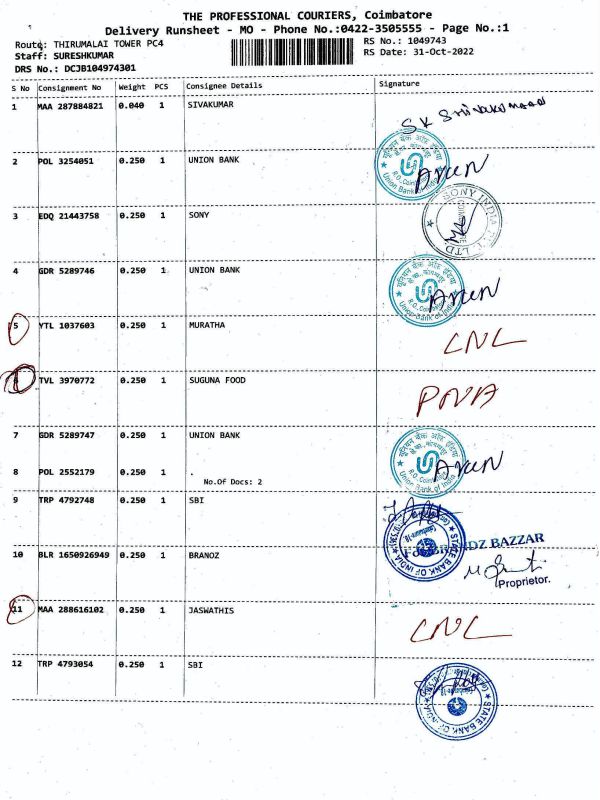 THE PROFESSIONAL COURIERS, Coimbatore
Delivery Runsheet - MO - Phone No.:0422-3505555 - Page No.:1
Route: THIRUMALAI TOWER PC4 RS No.: 1049743
Staff: SURESHKUMAR RS Date: 31-Oct-2022
DRS No.: DCJB104974301
S No Consignment No Weight PCS Consignee Details Signature
1 MAA 287884821 0.040 1 SIVAKUMAR
2 POL 3254051 0.250 1 UNION BANK Arun
3 EDQ 21443758 0.250 1 SONY SONY INDIA PVT LTD
4 GDR 5289746 0.250 1 UNION BANK Arun
5 YTL 1037603 0.250 1 MURATHA CNL
TVL 3970772 0.250 1 SUGUNA FOOD PNA
7 GDR 5289747 0.250 1 UNION BANK Arun
8 POL 2552179 0.250 1 .
No.Of Docs: 2
9 TRP 4792748 0.250 1 SBI STATE BANK OF INDIA
10 BLR 1650926949 0.250 1 BRANOZ For BRANDZ BAZZAR
Proprietor.
11 MAA 288616102 0.250 1 JASWATHIS CNL
12 TRP 4793054 0.250 1 SBI STATE BANK OF INDIA